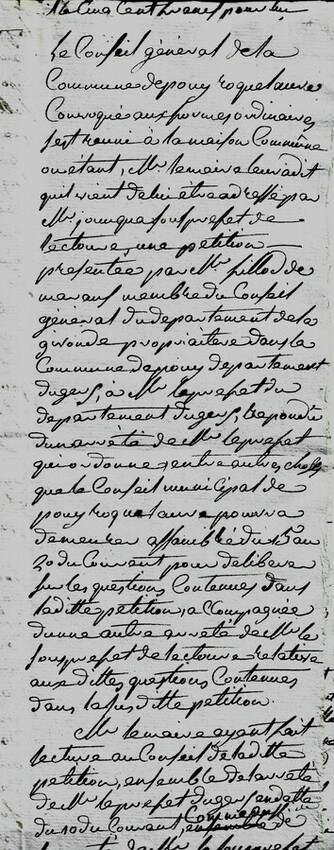 Cinq Cent francs pour
Le Conseil général de la
Commune de pouy roquelaure
Convoqué aux formes ordinaires
s'est reuni à la maison Commune
ou étant, Mr. le maire leur a dit
qu'il vient de lui être adressé par
Mr. sousprefet de
lectoure, une petition
presentée par Mr. de
membre du Conseil
général du departement de la
gironde propriétaire dans la
Commune de pouy departement
du gers, à Mr. le prefet du
departement du gers, repondue
d'un arrêté de Mr. le prefet
qui ordonne entre autres choses
que le Conseil municipal de
pouy roquelaure pourra
demeurer assemblé du 15 au
30 du Courant pour deliberer
sur les questions Contenues dans
laditte petition, accompagnée
d'une autre arrêté de Mr. le
sousprefet de lectoure relative
aux dittes questions Contenues
dans la susditte petition.
Mr. le maire ayant fait
lecture au Conseil de laditte
petition, ensemble de l'arrêté
de Mr. le prefet du gers en datte
du 10 du Courant, de
Mr. le sousprefet